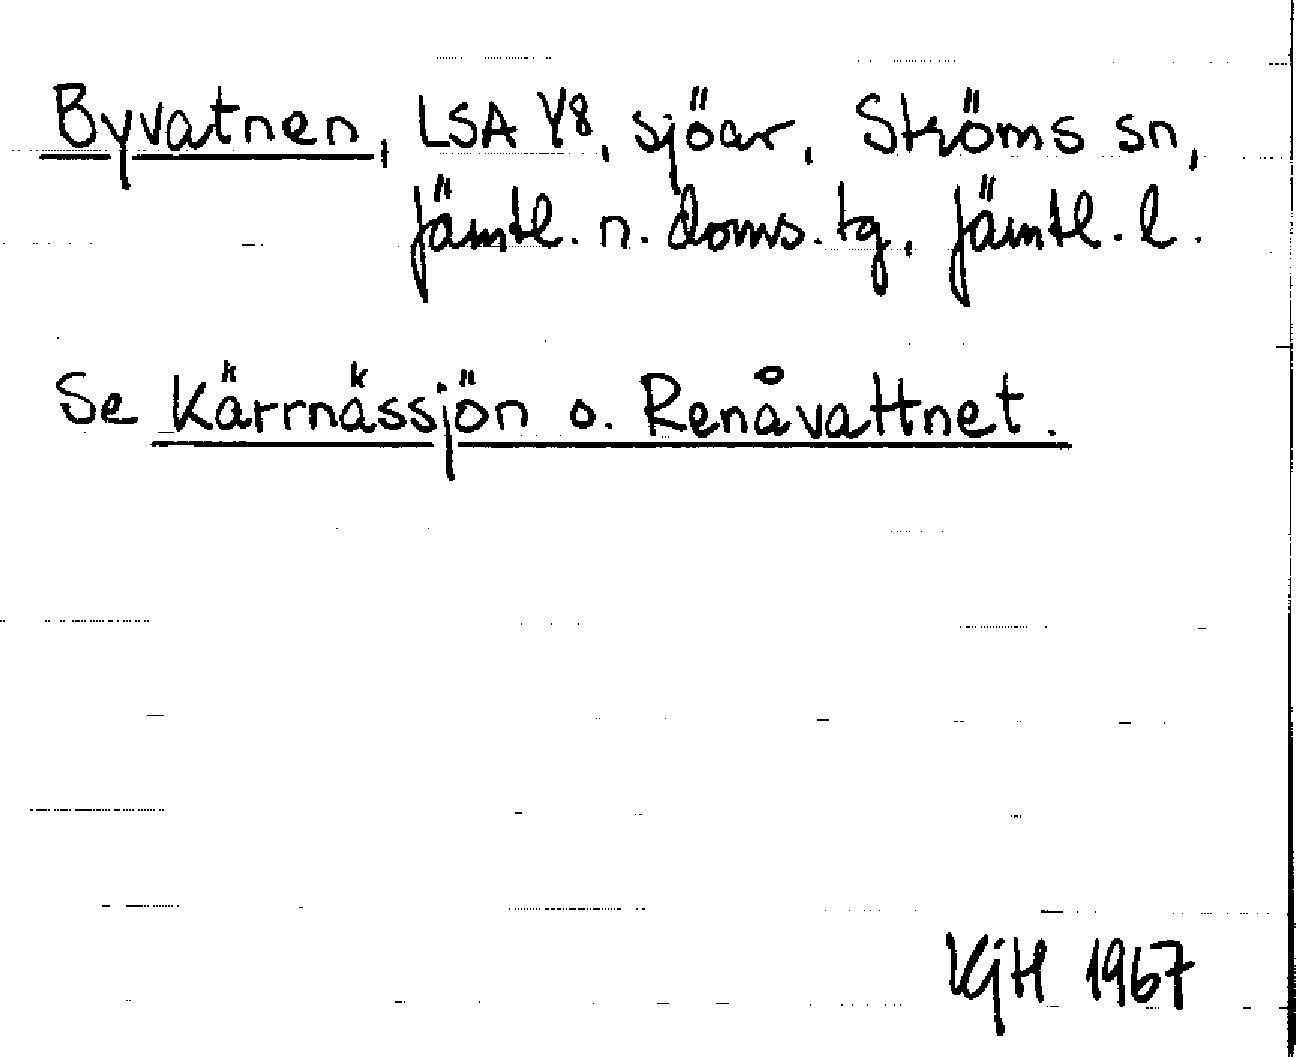 Byvatnen, LSA Y8, sjöar, Ströms sn,
Jämtl. n. doms. tg, Jämtl. l.
Se Kärrnässjön o. Renåvattnet.
VGH 1967